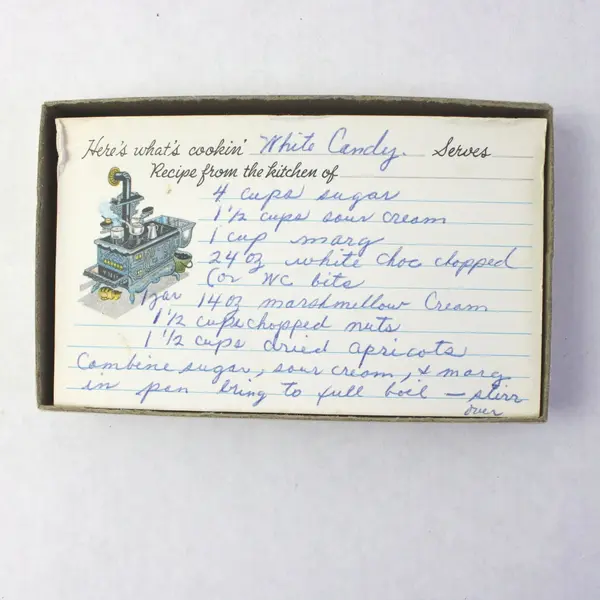 Here's what's cookin' White Candy. Serves
Recipe from the kitchen of
4 cups sugar
1 1/2 cups sour cream
1 cup marg
24 oz white choc chopped
(or WC bits
1 jar 14 oz marshmellow Cream
1 1/2 cups chopped nuts
1 1/2 cups dried apricots
Combine sugar, sour cream, & marg
in pan bring to full boil – stirr
over